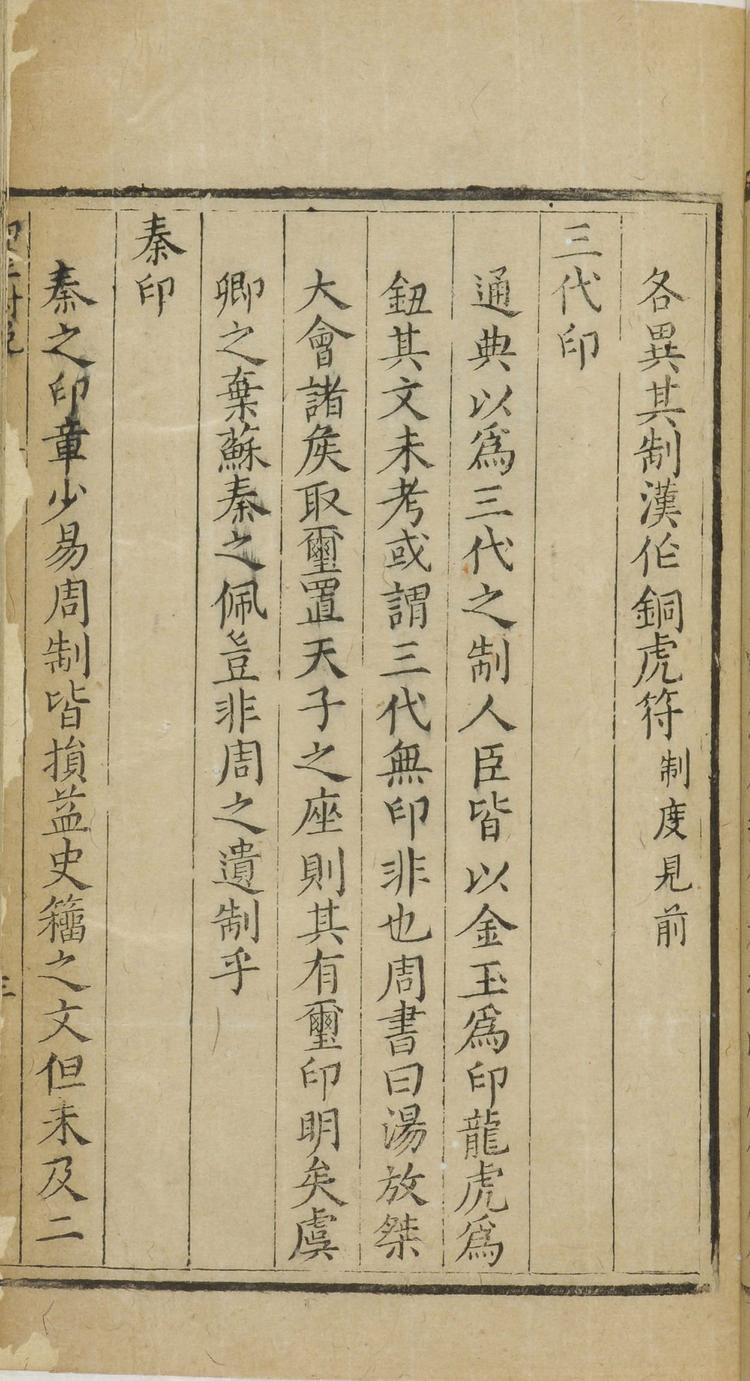 各異其制漢作銅虎符制度見前
三代印
通典以爲三代之制人臣皆以金玉爲印龍虎爲
鈕其文未考或謂三代無印非也周書曰湯放桀
大會諸矦取璽置天子之座則其有璽印明矣虞
卿之棄蘇秦之佩豈非周之遺制乎
秦印
秦之印章少易周制皆損益史籕之文但未及二